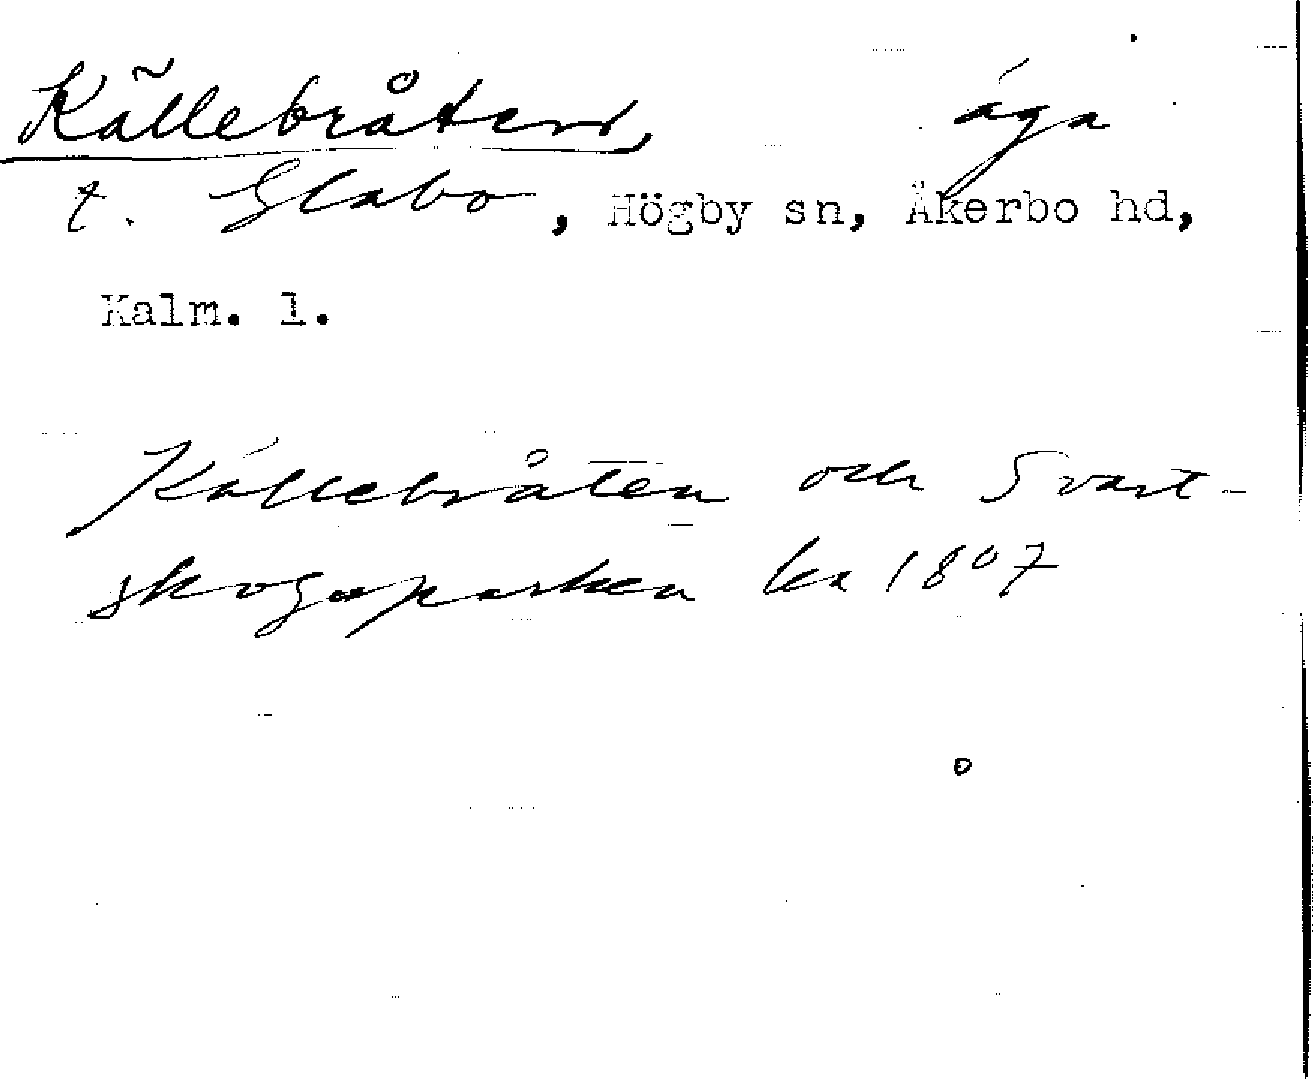 Källebråten, äga
t. Glabo, Högby sn, Åkerbo hd,
Kalm. l.
Källebråten och Svart-
skogsparken ka 1807